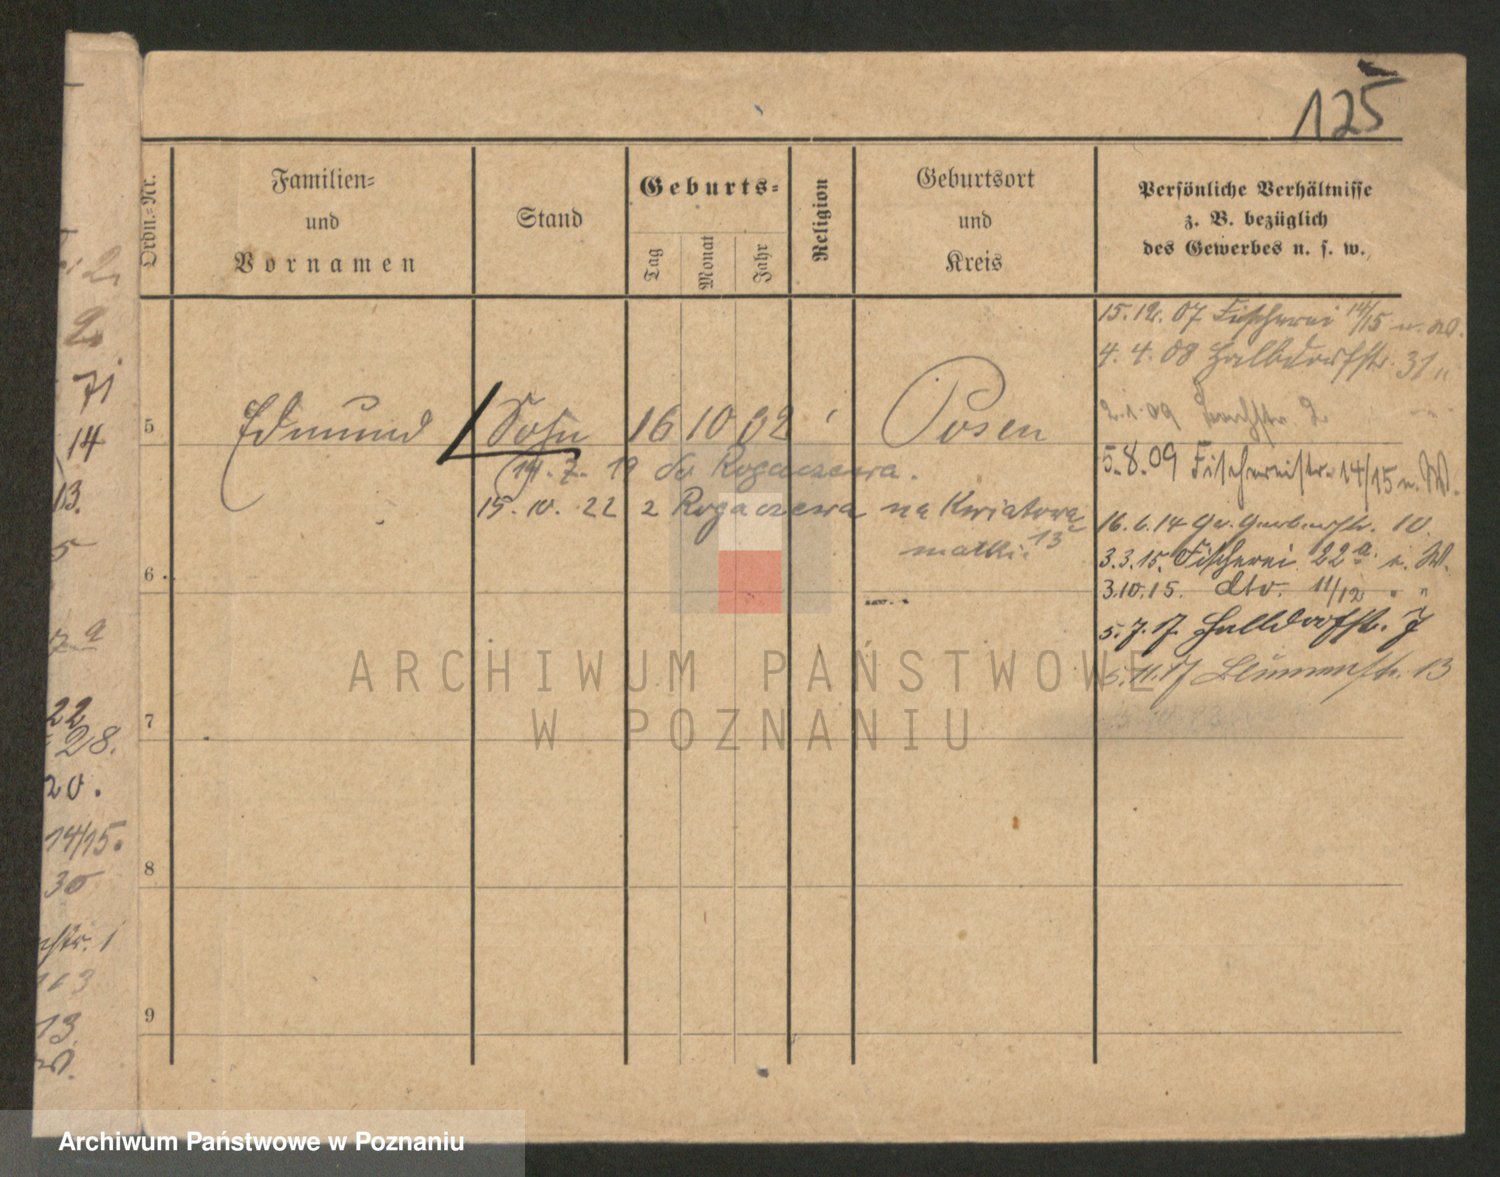 125
Ordn.-Nr.
Familien-
und
Vornamen
Stand
Geburts-
Tag
Monat
Jahr
Religion
Geburtsort
und
Kreis
Persönliche Verhältnisse
z. B. bezüglich
des Gewerbes u. s. w.
15.12.07 Fischerei 14/15 u. W.
4.4.08 Halbdorfstr. 31 "
2.1.09 2
5.8.09 Fischereistr. 14/15 u. W.
16.6.14 Gr. Gerberstr. 10.
3.3.15. Fischerei 22a i. W.
3.10.15. dto. 11/12 " "
5.7.17. Halbdorfstr. 7
5.11.17 Blumenstr. 13
5 Edmund Sohn 16 10 02 Posen
14.7.19 do Rogaczewa.
15.10.22 z Rogaczewa na Kwiatową 13
matki
6
7
8
9
2
71
14
13.
5
22
28.
20.
14/15.
30
str. 1
113
13
W.
ARCHIWUM PAŃSTWOWE
W POZNANIU
Archiwum Państwowe w Poznaniu